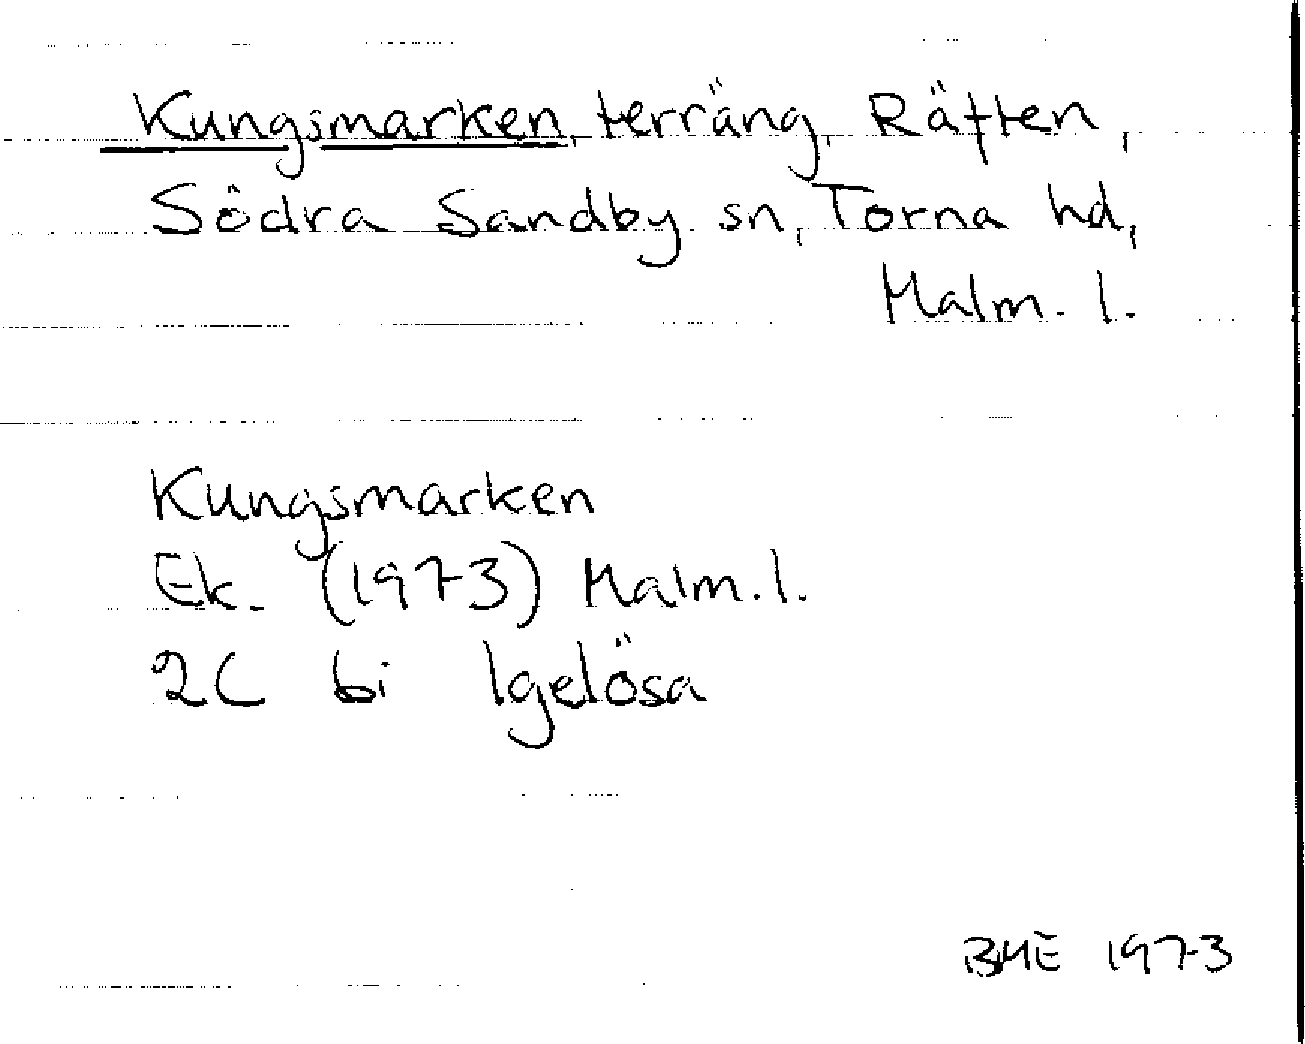 Kungsmarken, terräng, Räften,
Södra Sandby sn, Torna hd,
Malm. l.
Kungsmarken
Ek. (1973) Malm.l.
2C bi Igelösa
BME 1973